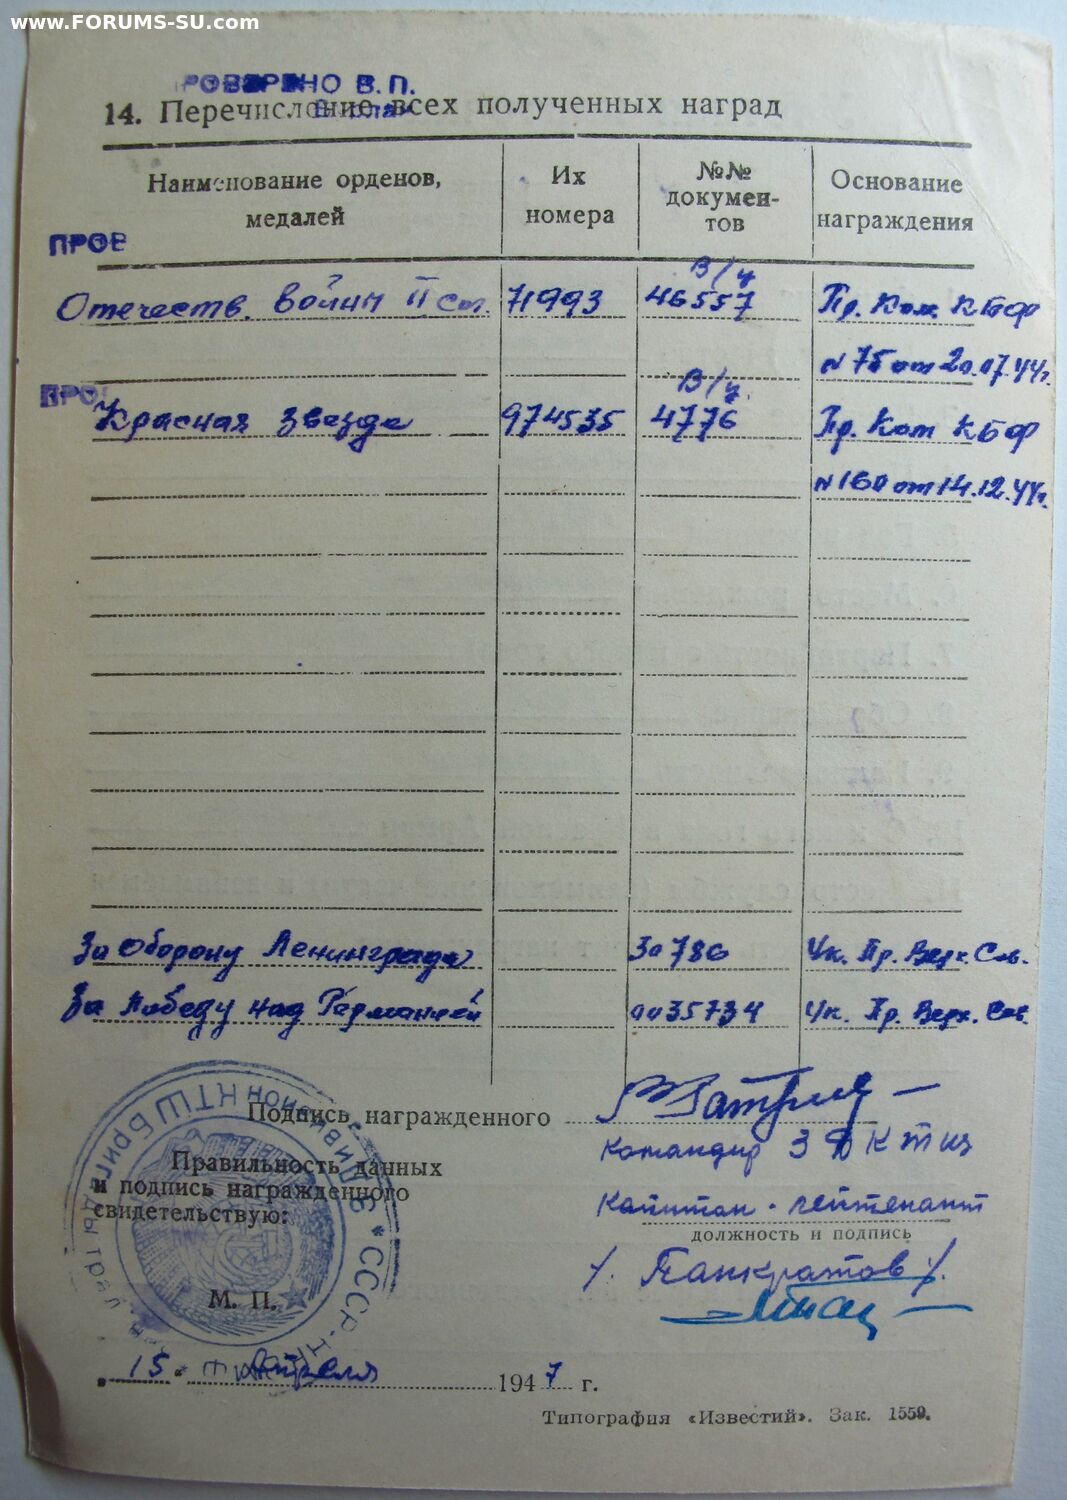 www.FORUMS-SU.com
РОВЕРЕНО В.П.
14. Перечисление всех полученных наград
Наименование орденов, медалей
Их номера
№№ докумен-тов
Основание награждения
ПРОВ
В/ч
Отечеств. войны II ст. 71993 46557 Пр. Ком. КБФ
№ 75 от 20.07.44г.
ПРО
В/ч.
Красная Звезда 974535 4776 Пр. Ком КБФ
№ 160 от 14.12.44г.
За оборону Ленинграда 786 Ук. Пр. Верх. Сов.
За победу над Германией 0035734 Ук. Пр. Верх. Сов.
Подпись награжденного
Командир 3 ДКТЩ
Правильность данных
и подпись награжденного
свидетельствую:
капитан-лейтенант
должность и подпись
/. Панкратов /.
М. П.
СССР
ДИВИЗИОН КТЩ Бригады трал
„15“ Апреля 1947 г.
Типография «Известий». Зак. 1559.